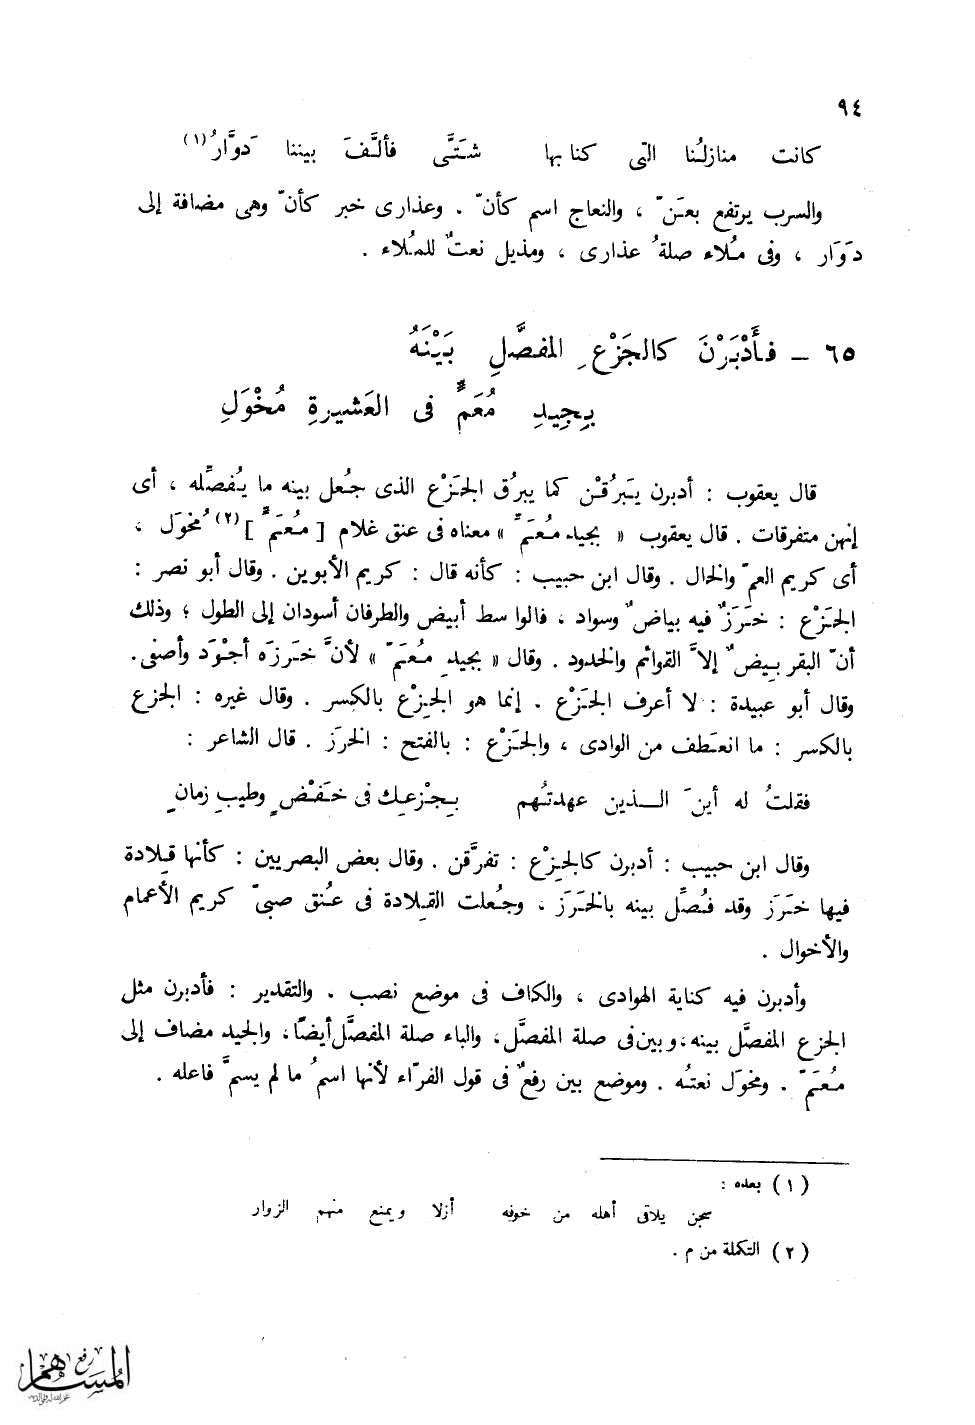 ٩٤
كانت منازلُنا التى كنا بها شَتَّى فألَّفَ بيننا دَوَّارُ(١)
والسرب يرتفع بعَنّ ، والنعاج اسم كأنّ . وعذارى خبر كأنّ وهى مضافة إلى
دَوَار ، وفى مُلاء صلةُ عذارى ، ومذيل نعتٌ للمُلاء .
٦٥ – فَأَدْبَرْنَ كالجَزْعِ المفصَّلِ بَيْنَهُ
بِجِيدِ مُعَمٍّ فى العَشيرةِ مُخْوَلِ
قال يعقوب : أدبرن يَبرُقْن كما يبرُق الجَزْع الذى جُعل بينه ما يُفصِّله ، أى
إنهن متفرقات . قال يعقوب « بجيد مُعَمٍّ » معناه فى عنق غلام [ مُعَمٍّ ](٢) مُخوَل ،
أى كريم العمّ والخال . وقال ابن حبيب : كأنه قال : كريم الأبوين . وقال أبو نصر :
الجَزْع : خَرَزٌ فيه بياضٌ وسواد ، فالوا سط أبيض والطرفان أسودان إلى الطول ؛ وذلك
أنّ البقر بِيضٌ إلاَّ القوائم والخدود . وقال « بجيدِ مُعَمّ » لأنَّ خَرزَه أجْوَد وأصفى.
وقال أبو عبيدة : لا أعرف الجَزْع . إنما هو الجِزْع بالكسر . وقال غيره : الجزع
بالكسر : ما انعَطف من الوادى ، والجَزْع : بالفتح : الخرَز . قال الشاعر :
فقلتُ له أينَ الـــذين عهدتُهم بِجْزعِك فى خَفْضٍ وطيبِ زمانٍ
وقال ابن حبيب : أدبرن كالجِزْع : تفرَّقن . وقال بعض البصريين : كأنها قِلادة
فيها خَرَز وقد فُصِّل بينه بالخَرَز ، وجُعلت القِلادة فى عُنق صبىّ كريم الأعمام
والأخوال .
وأدبرن فيه كناية الهوادى ، والكاف فى موضع نصب . والتقدير : فأدبرن مثل
الجزع المفصَّل بينه، وبين فى صلة المفصَّل، والباء صلة المفصَّل أيضًا، والجيد مضاف إلى
مُعَمّ . ومخوَل نعتُه . وموضع بين رفعٌ فى قول الفرّاء لأنها اسمُ ما لم يسمَّ فاعله .
(١) بعده :
سجن يلاقى أهله من خوفه أزلا ويمنع منهم الزوار
(٢) التكملة من م .
رفع
المساهم